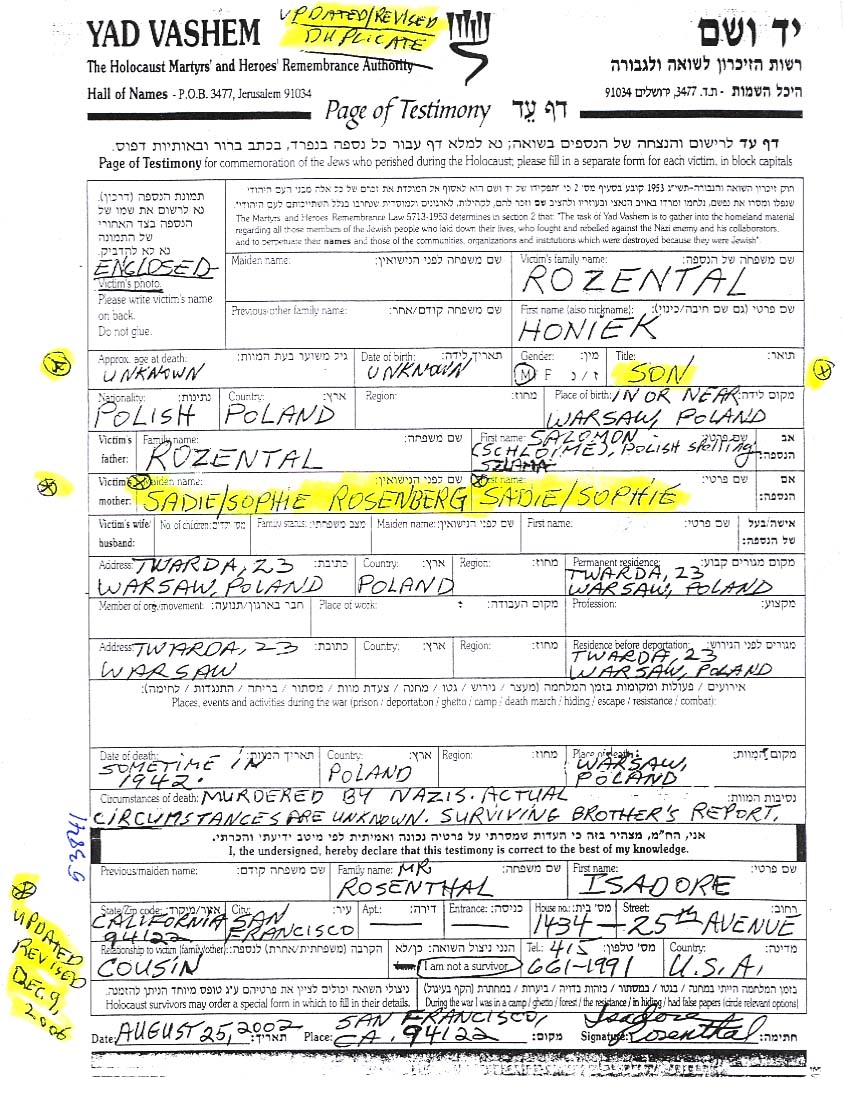 UPDATED/REVISED
DUPLICATE
YAD VASHEM
יד ושם
The Holocaust Martyrs' and Heroes' Remembrance Authority
רשות הזיכרון לשואה ולגבורה
Hall of Names - P.O.B. 3477, Jerusalem 91034
היכל השמות - ת.ד. 3477, ירושלים 91034
Page of Testimony דף עד
דף עד לרישום והנצחה של הנספים בשואה; נא למלא דף עבור כל נספה בנפרד, בכתב ברור ובאותיות דפוס.
Page of Testimony for commemoration of the Jews who perished during the Holocaust; please fill in a separate form for each victim, in block capitals
תמונת הנספה (דרכון).
נא לרשום את שמו של
הנספה בצד האחורי
של התמונה
נא לא להדביק.
ENCLOSED
Victim's photo.
Please write victim's name
on back.
Do not glue.
חוק זיכרון השואה והגבורה-תשי"ג 1953 קובע בסעיף מס' 2 כי תפקידו של יד ושם הוא לאסוף אל המולדת את זכרם של כל אלה מבני העם היהודי
שנפלו ומסרו את נפשם, נלחמו ומרדו באויב הנאצי ובעוזריו ולהציב שם וזכר להם, לקהילות, לארגונים ולמוסדות שנחרבו בגלל השתייכותם לעם היהודי.
The Martyrs and Heroes Remembrance Law 5713-1953 determines in section 2 that: "The task of Yad Vashem is to gather into the homeland material
regarding all those members of the Jewish people who laid down their lives, who fought and rebelled against the Nazi enemy and his collaborators,
and to perpetuate their names and those of the communities, organizations and institutions which were destroyed because they were Jewish".
Maiden name: שם משפחה לפני הנישואין: Victim's family name: שם משפחה של הנספה:
ROZENTAL
Previous/other family name: שם משפחה קודם/אחר: First name (also nickname): שם פרטי (גם שם חיבה/כינוי):
HONIEK
Approx. age at death: גיל משוער בעת המוות: Date of birth: תאריך לידה: Gender: מין: Title: תואר:
UNKNOWN UNKNOWN M F ז / נ SON
Nationality: נתינות: Country: ארץ: Region: מחוז: Place of birth: מקום לידה:
POLISH POLAND IN OR NEAR
WARSAW, POLAND
Victim's father: Family name: שם משפחה: First name: שם פרטי: אב הנספה:
ROZENTAL SALOMON
(SCHLOIME), POLISH spelling
SZLAMA
Victim's mother: Maiden name: שם לפני הנישואין: First name: שם פרטי: אם הנספה:
SADIE/SOPHIE ROSENBERG SADIE/SOPHIE
Victim's wife/ husband: No. of children: מס' ילדים: Family status: מצב משפחתי: Maiden name: שם לפני הנישואין: First name: שם פרטי: אישה/בעל של הנספה:
Address: כתובת: Country: ארץ: Region: מחוז: Permanent residence: מקום מגורים קבוע:
TWARDA, 23 TWARDA, 23
WARSAW, POLAND POLAND WARSAW, POLAND
Member of org./movement: חבר בארגון/תנועה: Place of work: מקום העבודה: Profession: מקצוע:
Address: כתובת: Country: ארץ: Region: מחוז: Residence before deportation: מגורים לפני הגירוש:
TWARDA, 23 TWARDA, 23
WARSAW WARSAW, POLAND
אירועים / פעולות ומקומות בזמן המלחמה (מעצר / גירוש / גטו / מחנה / צעדת מוות / מסתור / בריחה / התנגדות / לחימה):
Places, events and activities during the war (prison / deportation / ghetto / camp / death march / hiding / escape / resistance / combat):
Date of death: תאריך המוות: Country: ארץ: Region: מחוז: Place of death: מקום המוות:
SOMETIME IN WARSAW,
1942. POLAND POLAND
Circumstances of death: נסיבות המוות:
MURDERED BY NAZIS. ACTUAL
CIRCUMSTANCES ARE UNKNOWN. SURVIVING BROTHER'S REPORT.
אני, החת"מ, מצהיר בזה כי העדות שמסרתי על פרטיה נכונה ואמיתית לפי מיטב ידיעתי והכרתי.
I, the undersigned, hereby declare that this testimony is correct to the best of my knowledge.
Previous/maiden name: שם משפחה קודם: Family name: שם משפחה: First name: שם פרטי:
MR
ROSENTHAL ISADORE
State/Zip code: אזור/מיקוד: City: עיר: Apt.: דירה: Entrance: כניסה: House no.: מס' בית: Street: רחוב:
CALIFORNIA SAN
94122 FRANCISCO 1434 - 25TH AVENUE
Relationship to victim (family/other): הקרבה (משפחתית/אחרת) לנספה: הנני ניצול השואה: כן/לא Tel.: מס' טלפון: Country: מדינה:
COUSIN I am not a survivor 415 661-1991 U.S.A.
ניצולי השואה יכולים לציין את פרטיהם ע"ג טופס מיוחד הניתן להזמנה.
Holocaust survivors may order a special form in which to fill in their details.
בזמן המלחמה הייתי במחנה / בגטו / במסתור / בזהות בדויה / ביערות / במחתרת (הקף בעיגול)
During the war I was in a camp / ghetto / forest / the resistance / in hiding / had false papers (circle relevant options)
Date: AUGUST 25, 2002 תאריך: Place: SAN FRANCISCO, CA. 94122 מקום: Signature: Isadore Rosenthal חתימה:
53841
UPDATED
REVISED
DEC. 9,
2006